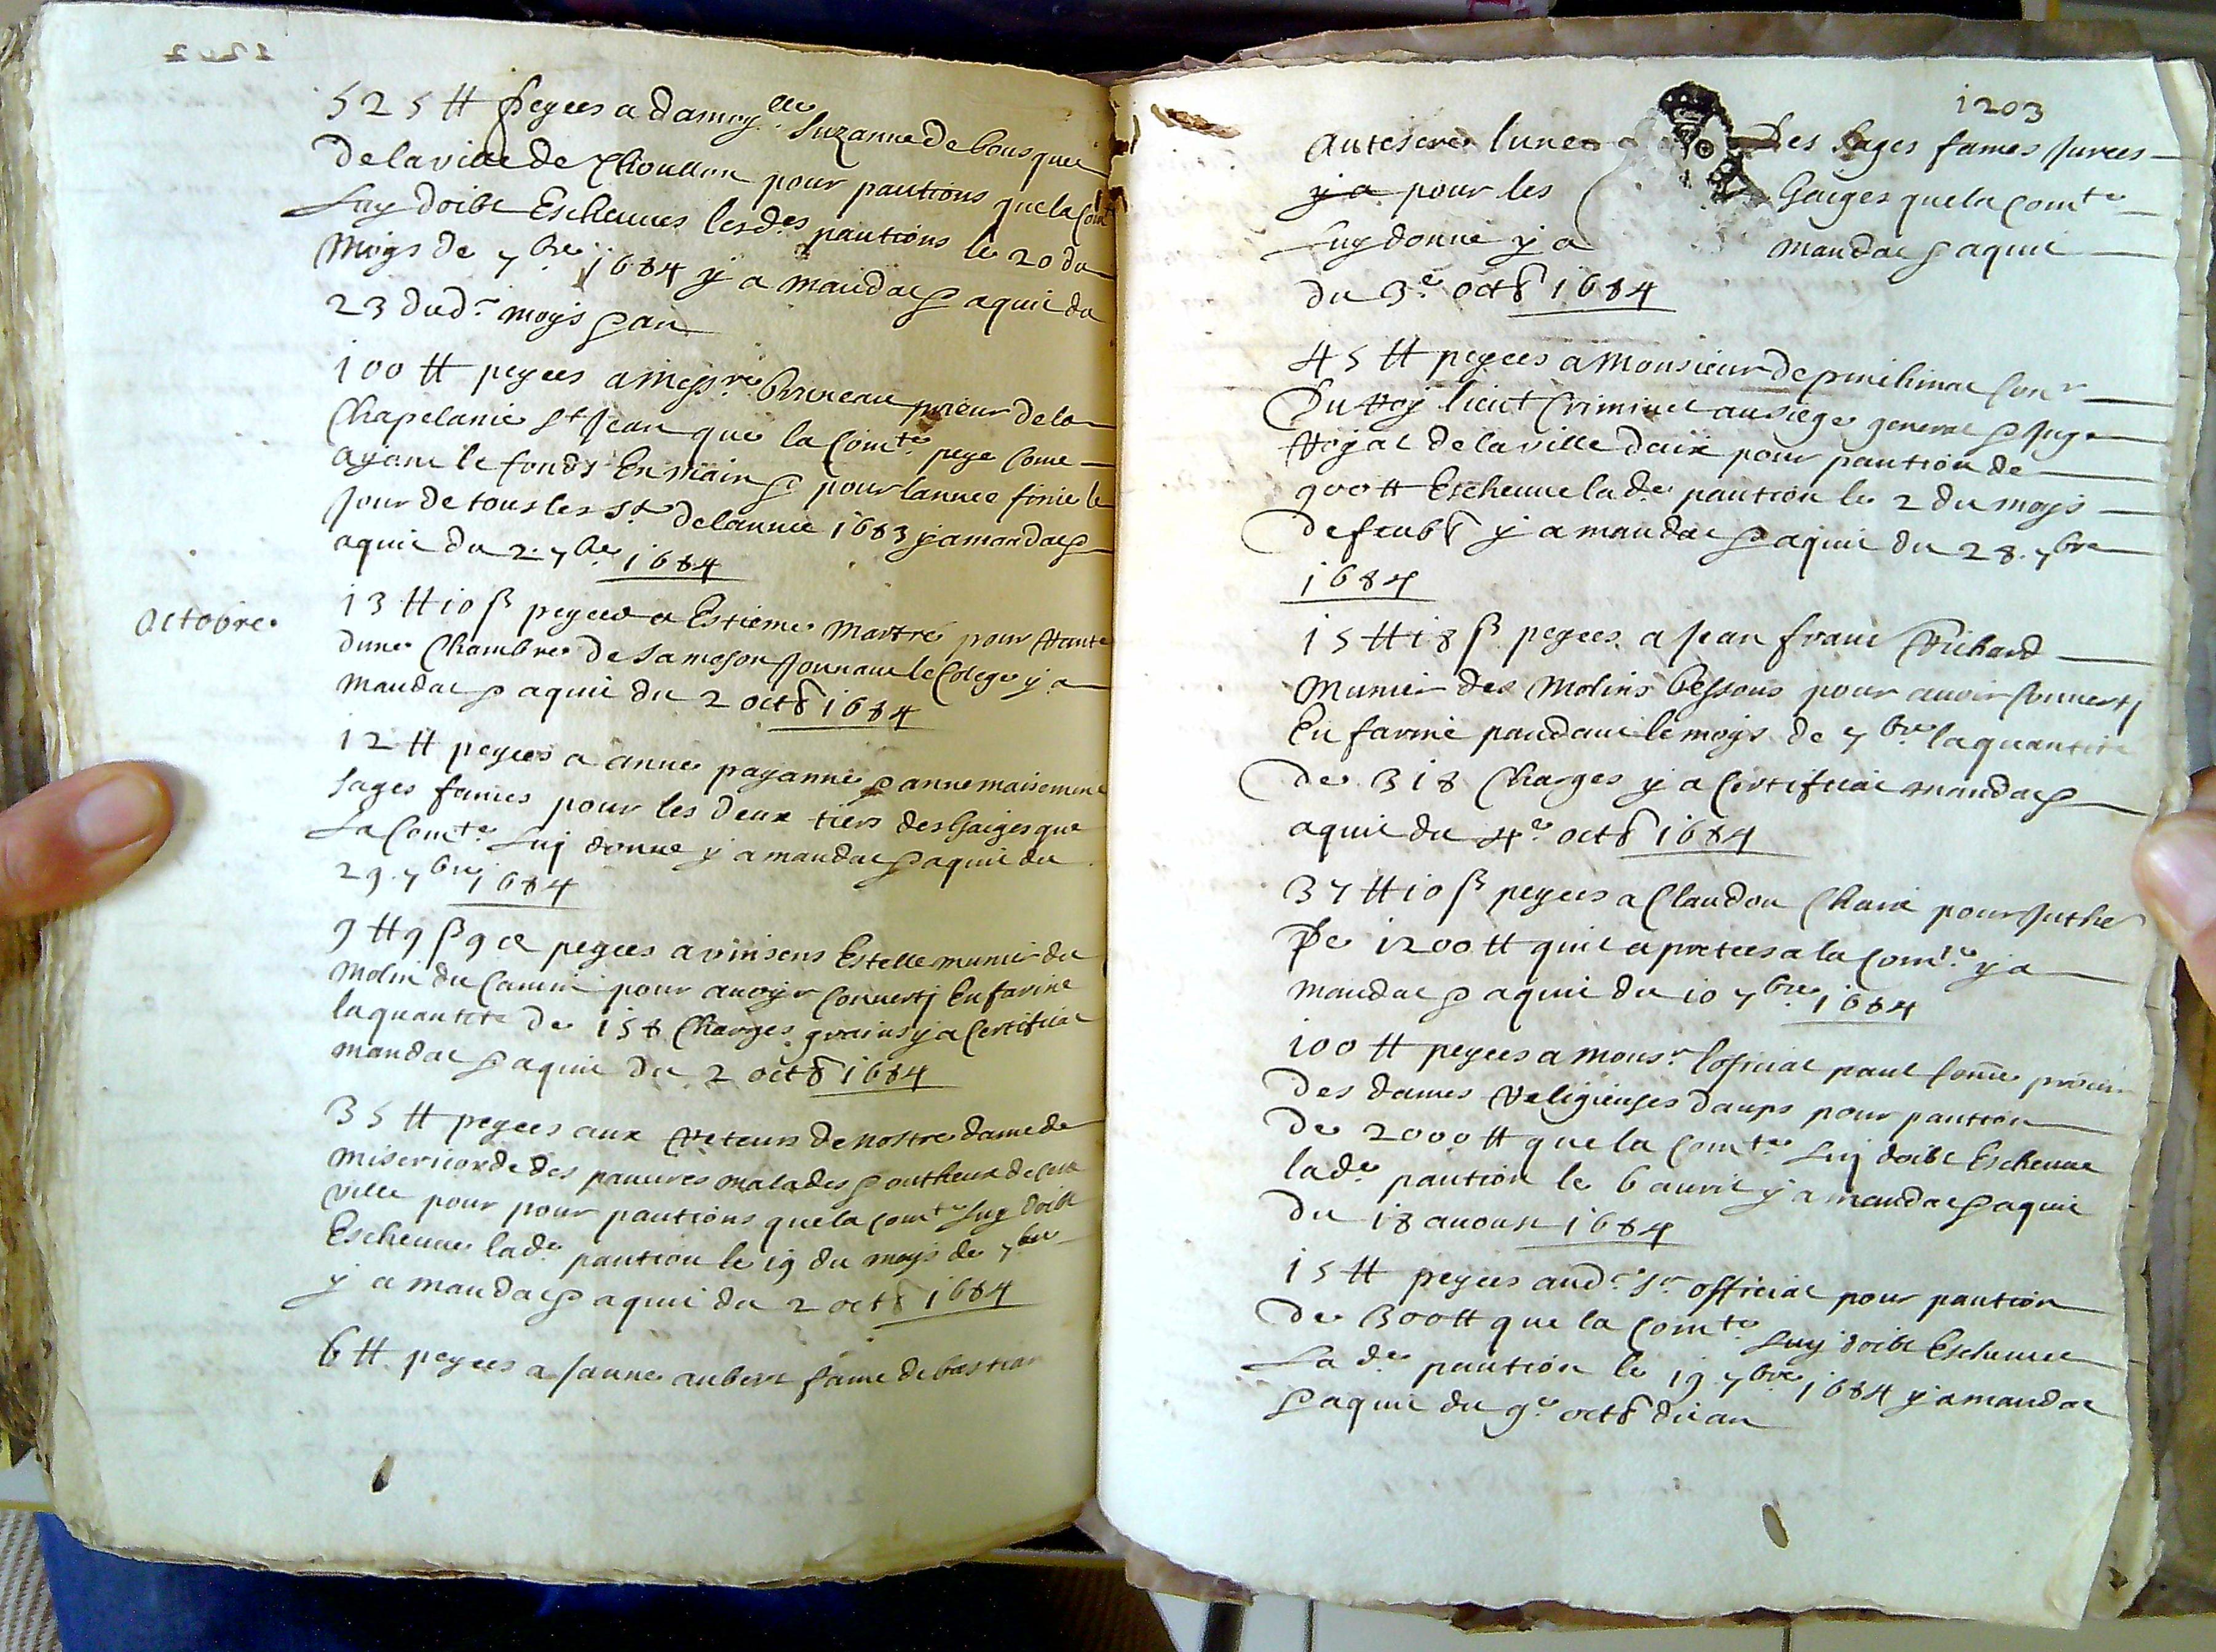 525 ₶ peyees a damoy.lle Suzanne de bousquei
de la ville de Thoullon pour pantions que la Com.te
Luy doibt Escheues lesd.es pantions le 20 du
moys de 7.bre 1684 y a mandat & aquit du
23 dud.t moys & an
100 ₶ peyees a Mess.re Bruneau prieur de la
Chapelanie S.t Jean que la Com.te peye Come
ayant le fonds En main & pour lannee finie le
Jour de tous les S.ts de lannee 1683 y a mandat &
aquit du 2. 7.bre 1684
Octobre
13 ₶ 10 ß peyees a Estieme Martre pour Rante
dune Chambre de sa meson Jonnant le Colege y a
mandat & aquit du 2 oct8 1684
12 ₶ peyees a anne payanne & anne maisemene
sages fames pour les deux tiers des Gaiges que
La Com.te Luj donne y a mandat & aquit du
29. 7.bre 1684
9 ₶ 9 ß 9 d peyees a vinsens Estelle munier du
Molin du Camin pour avoyr Converty En farine
la quantite de 158 Charges grains y a Certificat
mandat & aquit du 2 oct8 1684
35 ₶ peyees aux Reteurs de nostre dame de
misericorde des pauvres malades & ontheux de ceste
ville pour pour pantions que la Com.te Luy doibt
Escheue lad.e pantion le 19 du moys de 7.bre
y a mandat & aquit du 2 oct8 1684
6 ₶ peyees a Janne aubert fame de bastian
1203
Autesere lune des sages fames Jurees
y a pour les Gaiges que la Com.te
Luy donne y a mandat & aquit
du 3.e oct8 1684
45 ₶ peyees a Monsieur de pinchinat Con.r
Du Roy lieut Criminel au siege general & Juge
Royal de la ville daix pour pantion de
900 ₶ Escheue lad.e pantion le 2 du moys
de 7.bre
1684
15 ₶ 18 ß peyees a Jean frans Richard
Munier des Molins Bessons pour avoir Converty
En farine pandant le moys de 7.bre la quantite
de 318 Charges y a Certificat mandat &
aquit du 4.e oct8 1684
37 ₶ 10 ß peyees a Claudon Chaix pour Jnthe
De 1200 ₶ quil a pretees a la Com.te y a
mandat & aquit du 10 7.bre 1684
100 ₶ peyees a Mons.r lofficial paul Come procur
des dames Religieuses daups pour pantion
de 2000 ₶ que la Com.te Luj doibt Escheue
lad.e pantion le 6 avril y a mandat & aquit
du 18 avoust 1684
15 ₶ peyees aud.t S.r official pour pantion
de 300 ₶ que la Com.te Luy doibt Escheue
Lad.e pantion le 19 7.bre 1684 y a mandat
& aquit du 9.e oct8 dit an